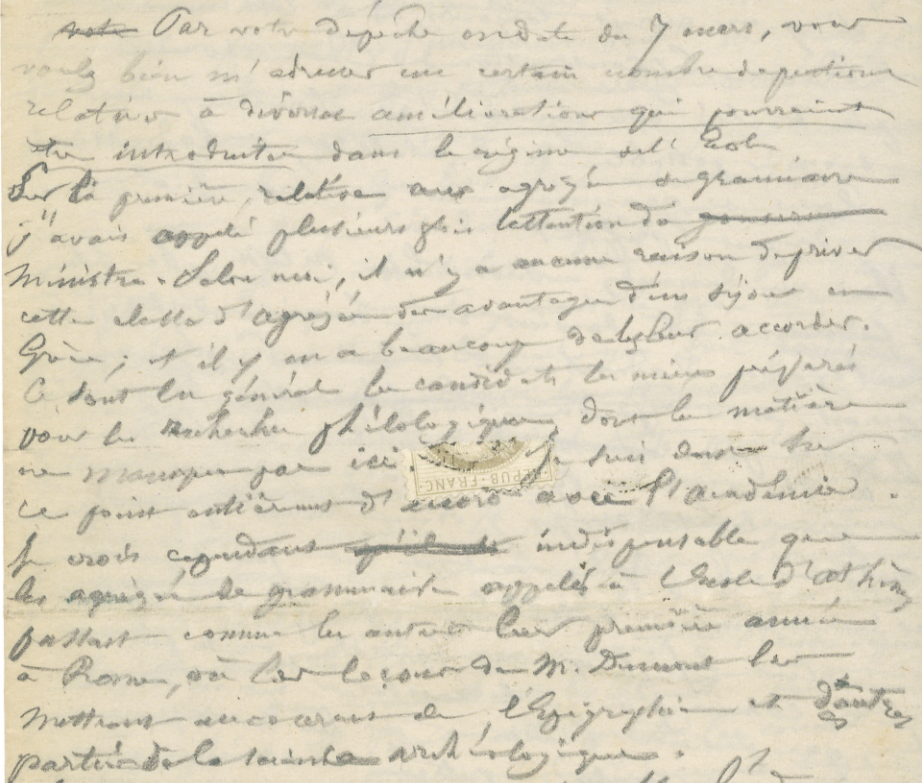 votre Par votre dépêche en date du 7 mars, vous
voulez bien m'adresser un certain nombre de questions
relatives à diverses améliorations qui pourraient
être introduites dans le régime de l'École
Sur la première, relative aux agrégés de grammaire
j'avais appelé plusieurs fois l'attention du
Ministre. Selon moi, il n'y a aucune raison de priver
cette classe d'agrégés des avantages d'un séjour en
Grèce; et il y en a beaucoup de les leur accorder.
Ce sont en général les candidats les mieux préparés
pour les recherches philologiques, dont la matière
ne manque pas ici. suis dans
ce point entièrement d'accord avec l'académie.
Je crois cependant qu'il est indispensable que
les agrégés de grammaire appelés à l'École d'Athènes
passent comme les autres leur première année
à Rome, où les leçons de M. Dumont les
mettront au courant de l'Épigraphie et d'autres
parties de la science archéologique.
REPUB-FRANC